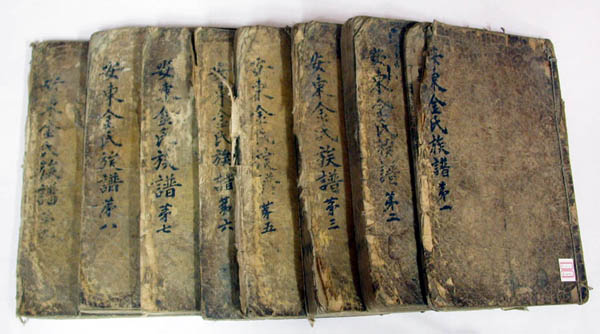 安東金氏族譜 第一
安東金氏族譜 第二
安東金氏族譜 第三
安東金氏族譜 第五
安東金氏族譜 第六
安東金氏族譜 第七
安東金氏族譜 第八
安東金氏族譜